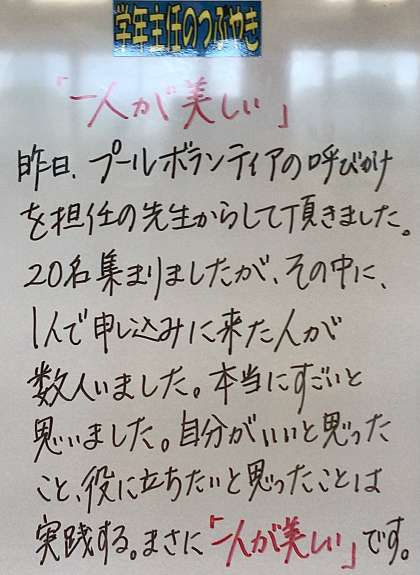 学年主任のつぶやき
「一人が美しい」
昨日、プールボランティアの呼びかけ
を担任の先生からして頂きました。
20名集まりましたが、その中に、
1人で申し込みに来た人が
数人いました。本当にすごいと
思いました。自分がいいと思った
こと、役に立ちたいと思ったことは
実践する。まさに「一人が美しい」です。